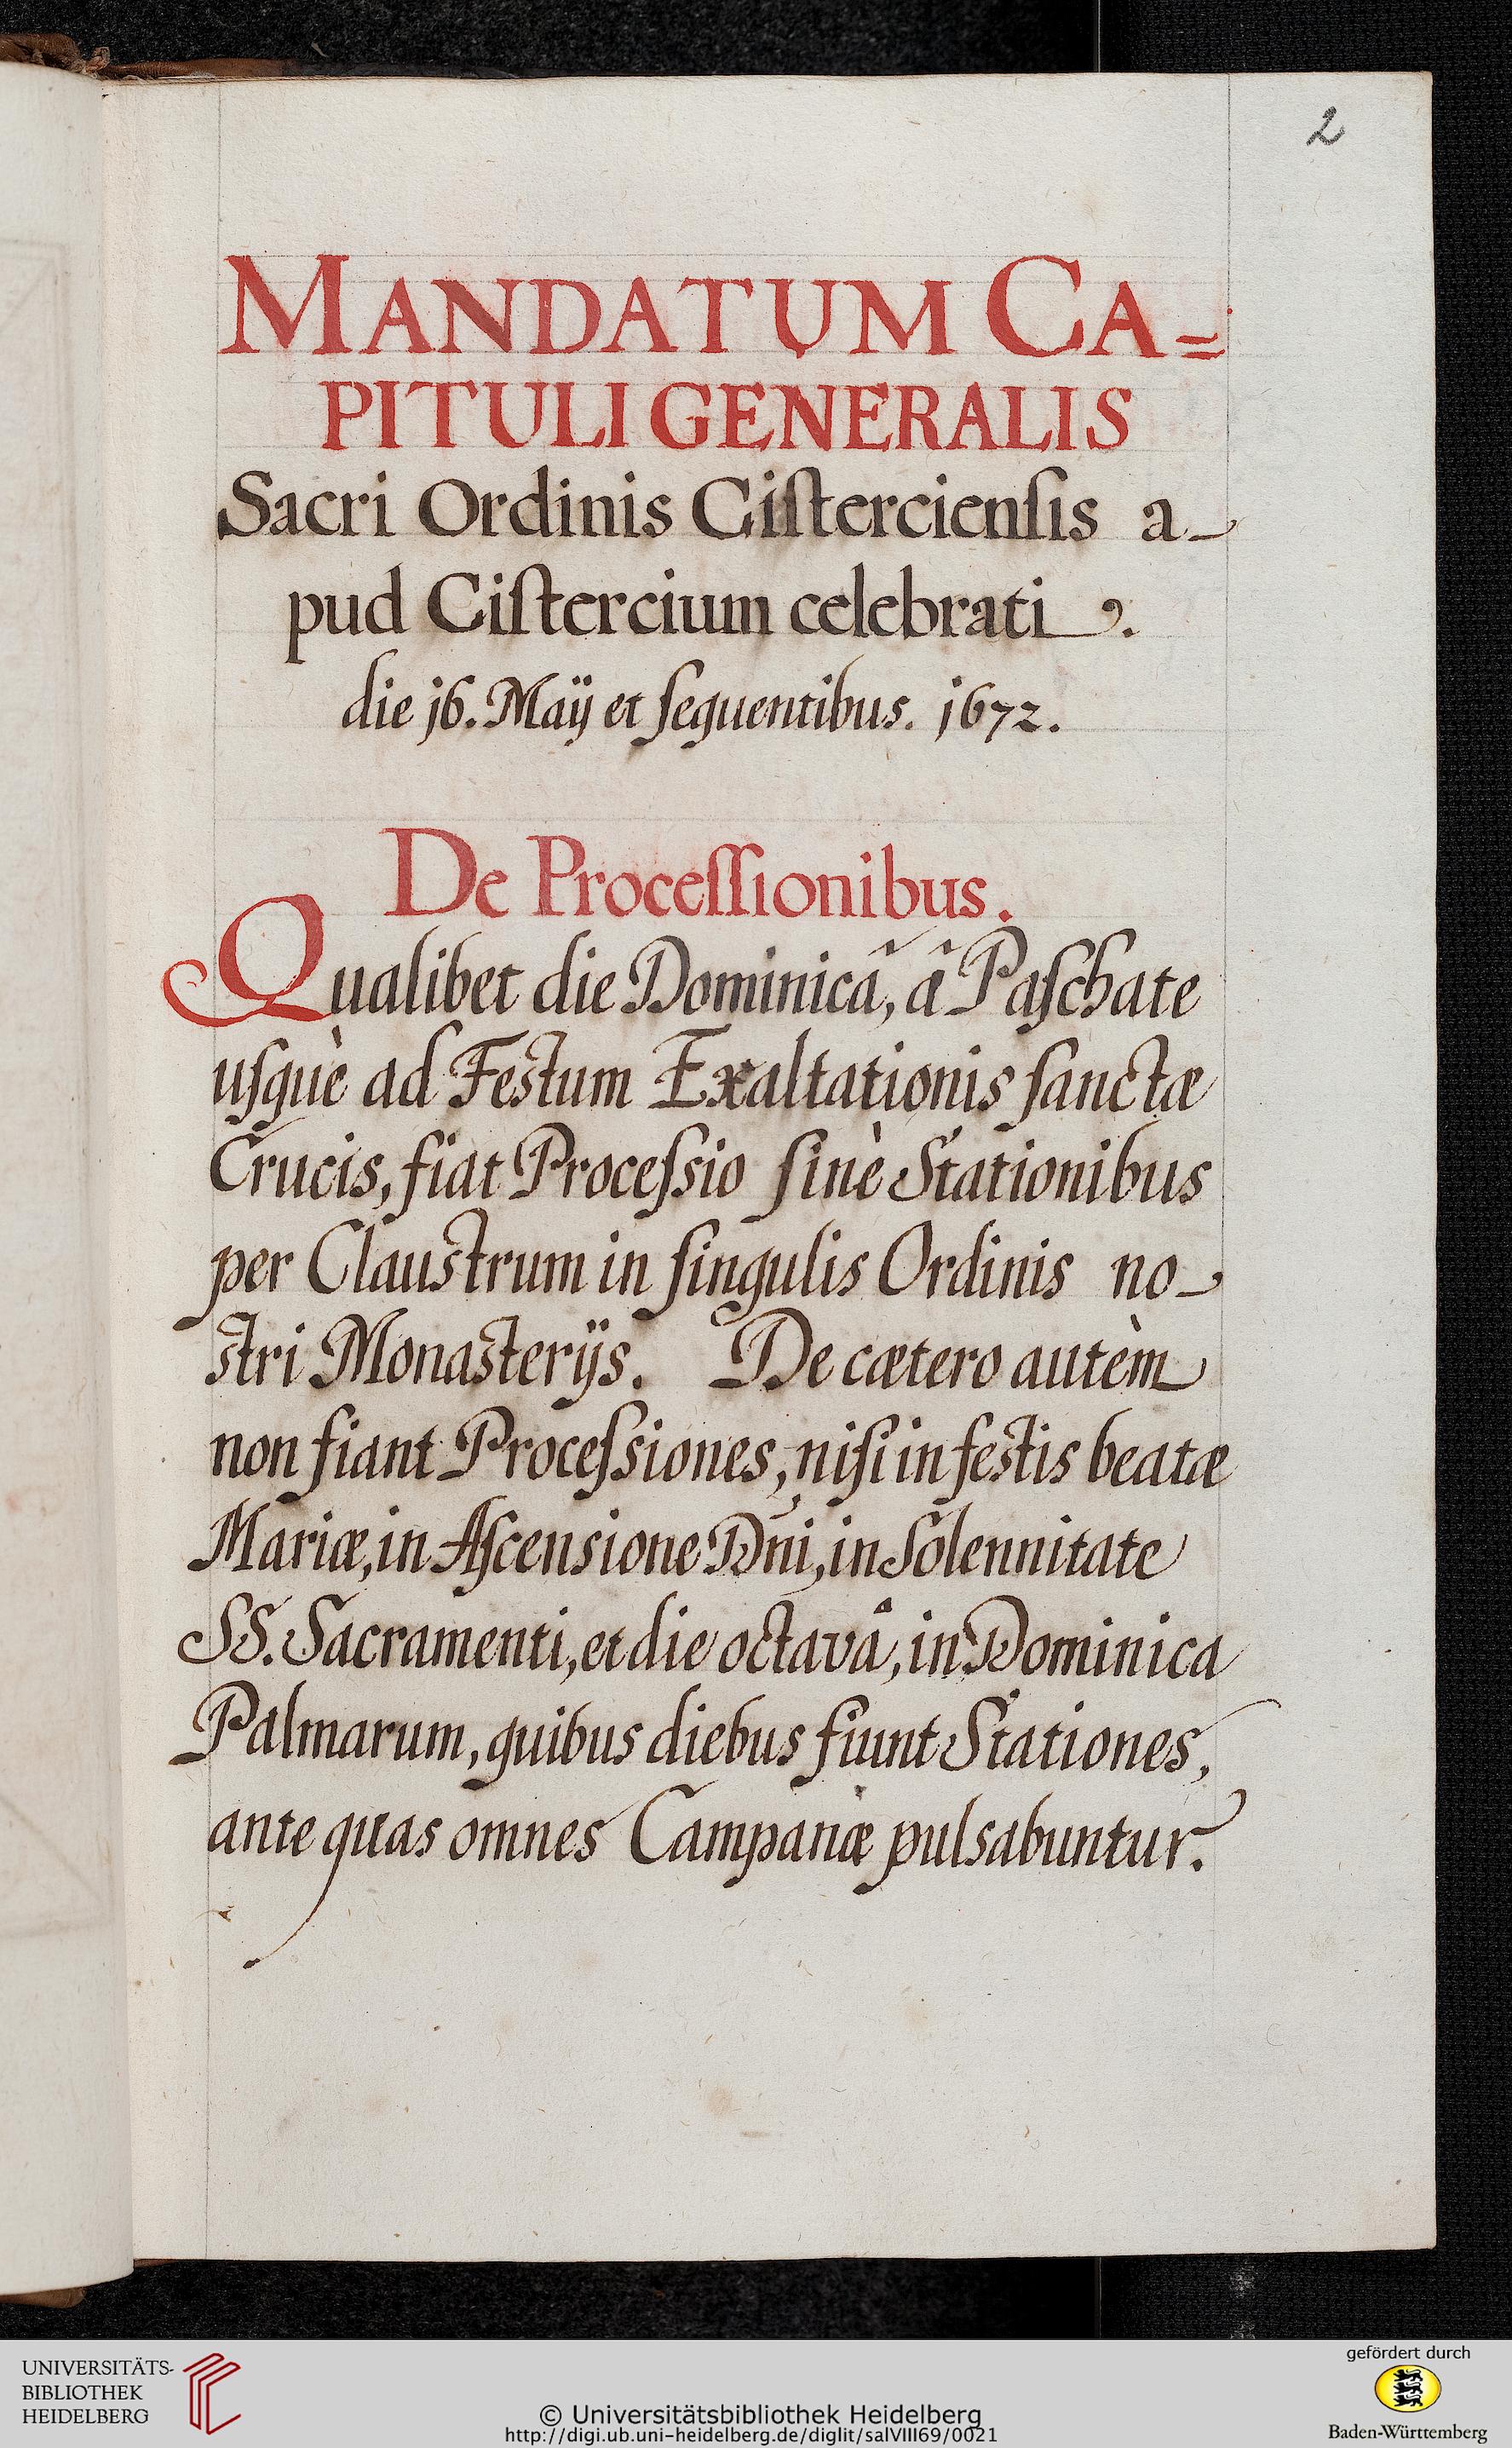 2
MANDATUM CA=
PITULI GENERALIS
Sacri Ordinis Ciſtercienſis a-
pud Ciſtercium celebrati.
die j6. Maÿ et ſequentibus. j672.
De Proceſſionibus.
Qualibet die Dominicâ, â Paſchate
uſquè ad Festum Exaltationis ſanctæ
Crucis, fiat Proceſsio ſinè Stationibus
per Claustrum in ſingulis Ordinis no-
stri Monasterijs. De cætero autèm
non fiant Proceſsiones, niſi in festis beatæ
Mariæ, in Aſcensione Dni, in Solennitate
SS. Sacramenti, et die octavâ, in Dominica
Palmarum, quibus diebus fiunt Stationes,
ante quas omnes Campanæ pulsabuntur.
UNIVERSITÄTS-
BIBLIOTHEK
HEIDELBERG
© Universitätsbibliothek Heidelberg
http://digi.ub.uni-heidelberg.de/diglit/salVIII69/0021
gefördert durch
Baden-Württemberg